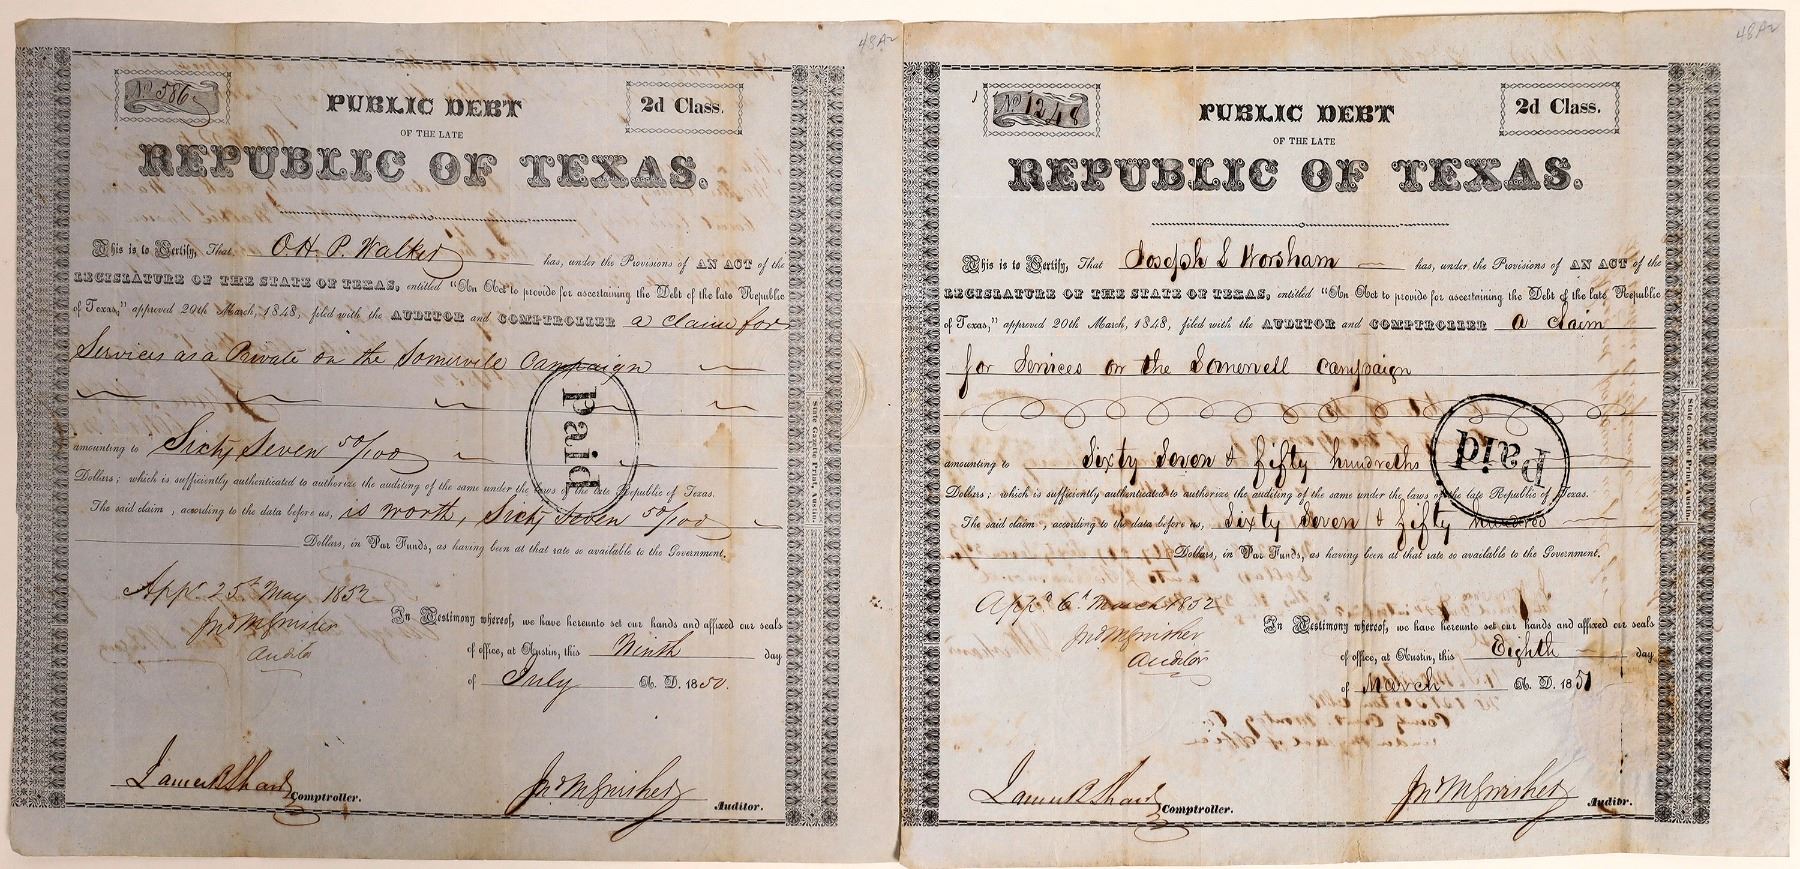 48A2
No 586
PUBLIC DEBT
2d Class.
OF THE LATE
REPUBLIC OF TEXAS.
This is to Certify, That O. H. P. Walker has, under the Provisions of AN ACT of the
LEGISLATURE OF THE STATE OF TEXAS, entitled "An Act to provide for ascertaining the Debt of the late Republic
of Texas," approved 20th March, 1848, filed with the AUDITOR and COMPTROLLER a claim for
Services as a Private on the Somervile Campaign
amounting to Sixty Seven 50/100
Dollars; which is sufficiently authenticated to authorize the auditing of the same under the laws of the late Republic of Texas.
The said claim, according to the data before us, is worth, Sixty Seven 50/100
Dollars, in Par Funds, as having been at that rate so available to the Government.
Paid
Appd 25th May 1852
Auditor
In Testimony whereof, we have hereunto set our hands and affixed our seals
of office, at Austin, this Ninth day
of July A. D. 1850.
James B Shaw Comptroller.
Auditor.
State Gazette Print, Austin.
48A2
No 1248
PUBLIC DEBT
2d Class.
OF THE LATE
REPUBLIC OF TEXAS.
This is to Certify, That Joseph L Worsham has, under the Provisions of AN ACT of the
LEGISLATURE OF THE STATE OF TEXAS, entitled "An Act to provide for ascertaining the Debt of the late Republic
of Texas," approved 20th March, 1848, filed with the AUDITOR and COMPTROLLER a claim
for Services on the Somervell campaign
amounting to Sixty Seven & fifty hundreths
Dollars; which is sufficiently authenticated to authorize the auditing of the same under the laws of the late Republic of Texas.
The said claim, according to the data before us, Sixty Seven & fifty hundred
Dollars, in Par Funds, as having been at that rate so available to the Government.
Paid
Appd 6th March 1852
Auditor
In Testimony whereof, we have hereunto set our hands and affixed our seals
of office, at Austin, this Eighth day
of March A. D. 1851
James B Shaw Comptroller.
Auditor.
State Gazette Print, Austin.